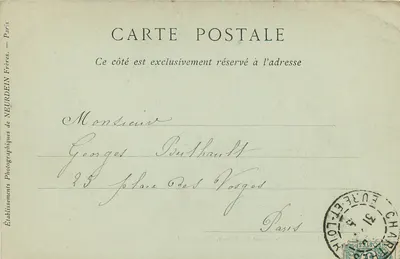 CARTE POSTALE
Ce côté est exclusivement réservé à l'adresse
Établissements Photographiques de NEURDEIN Frères. — Paris
Monsieur
Georges Berthault
23 place des Vosges
Paris
CHAR
EURE-ET-LOIR
31